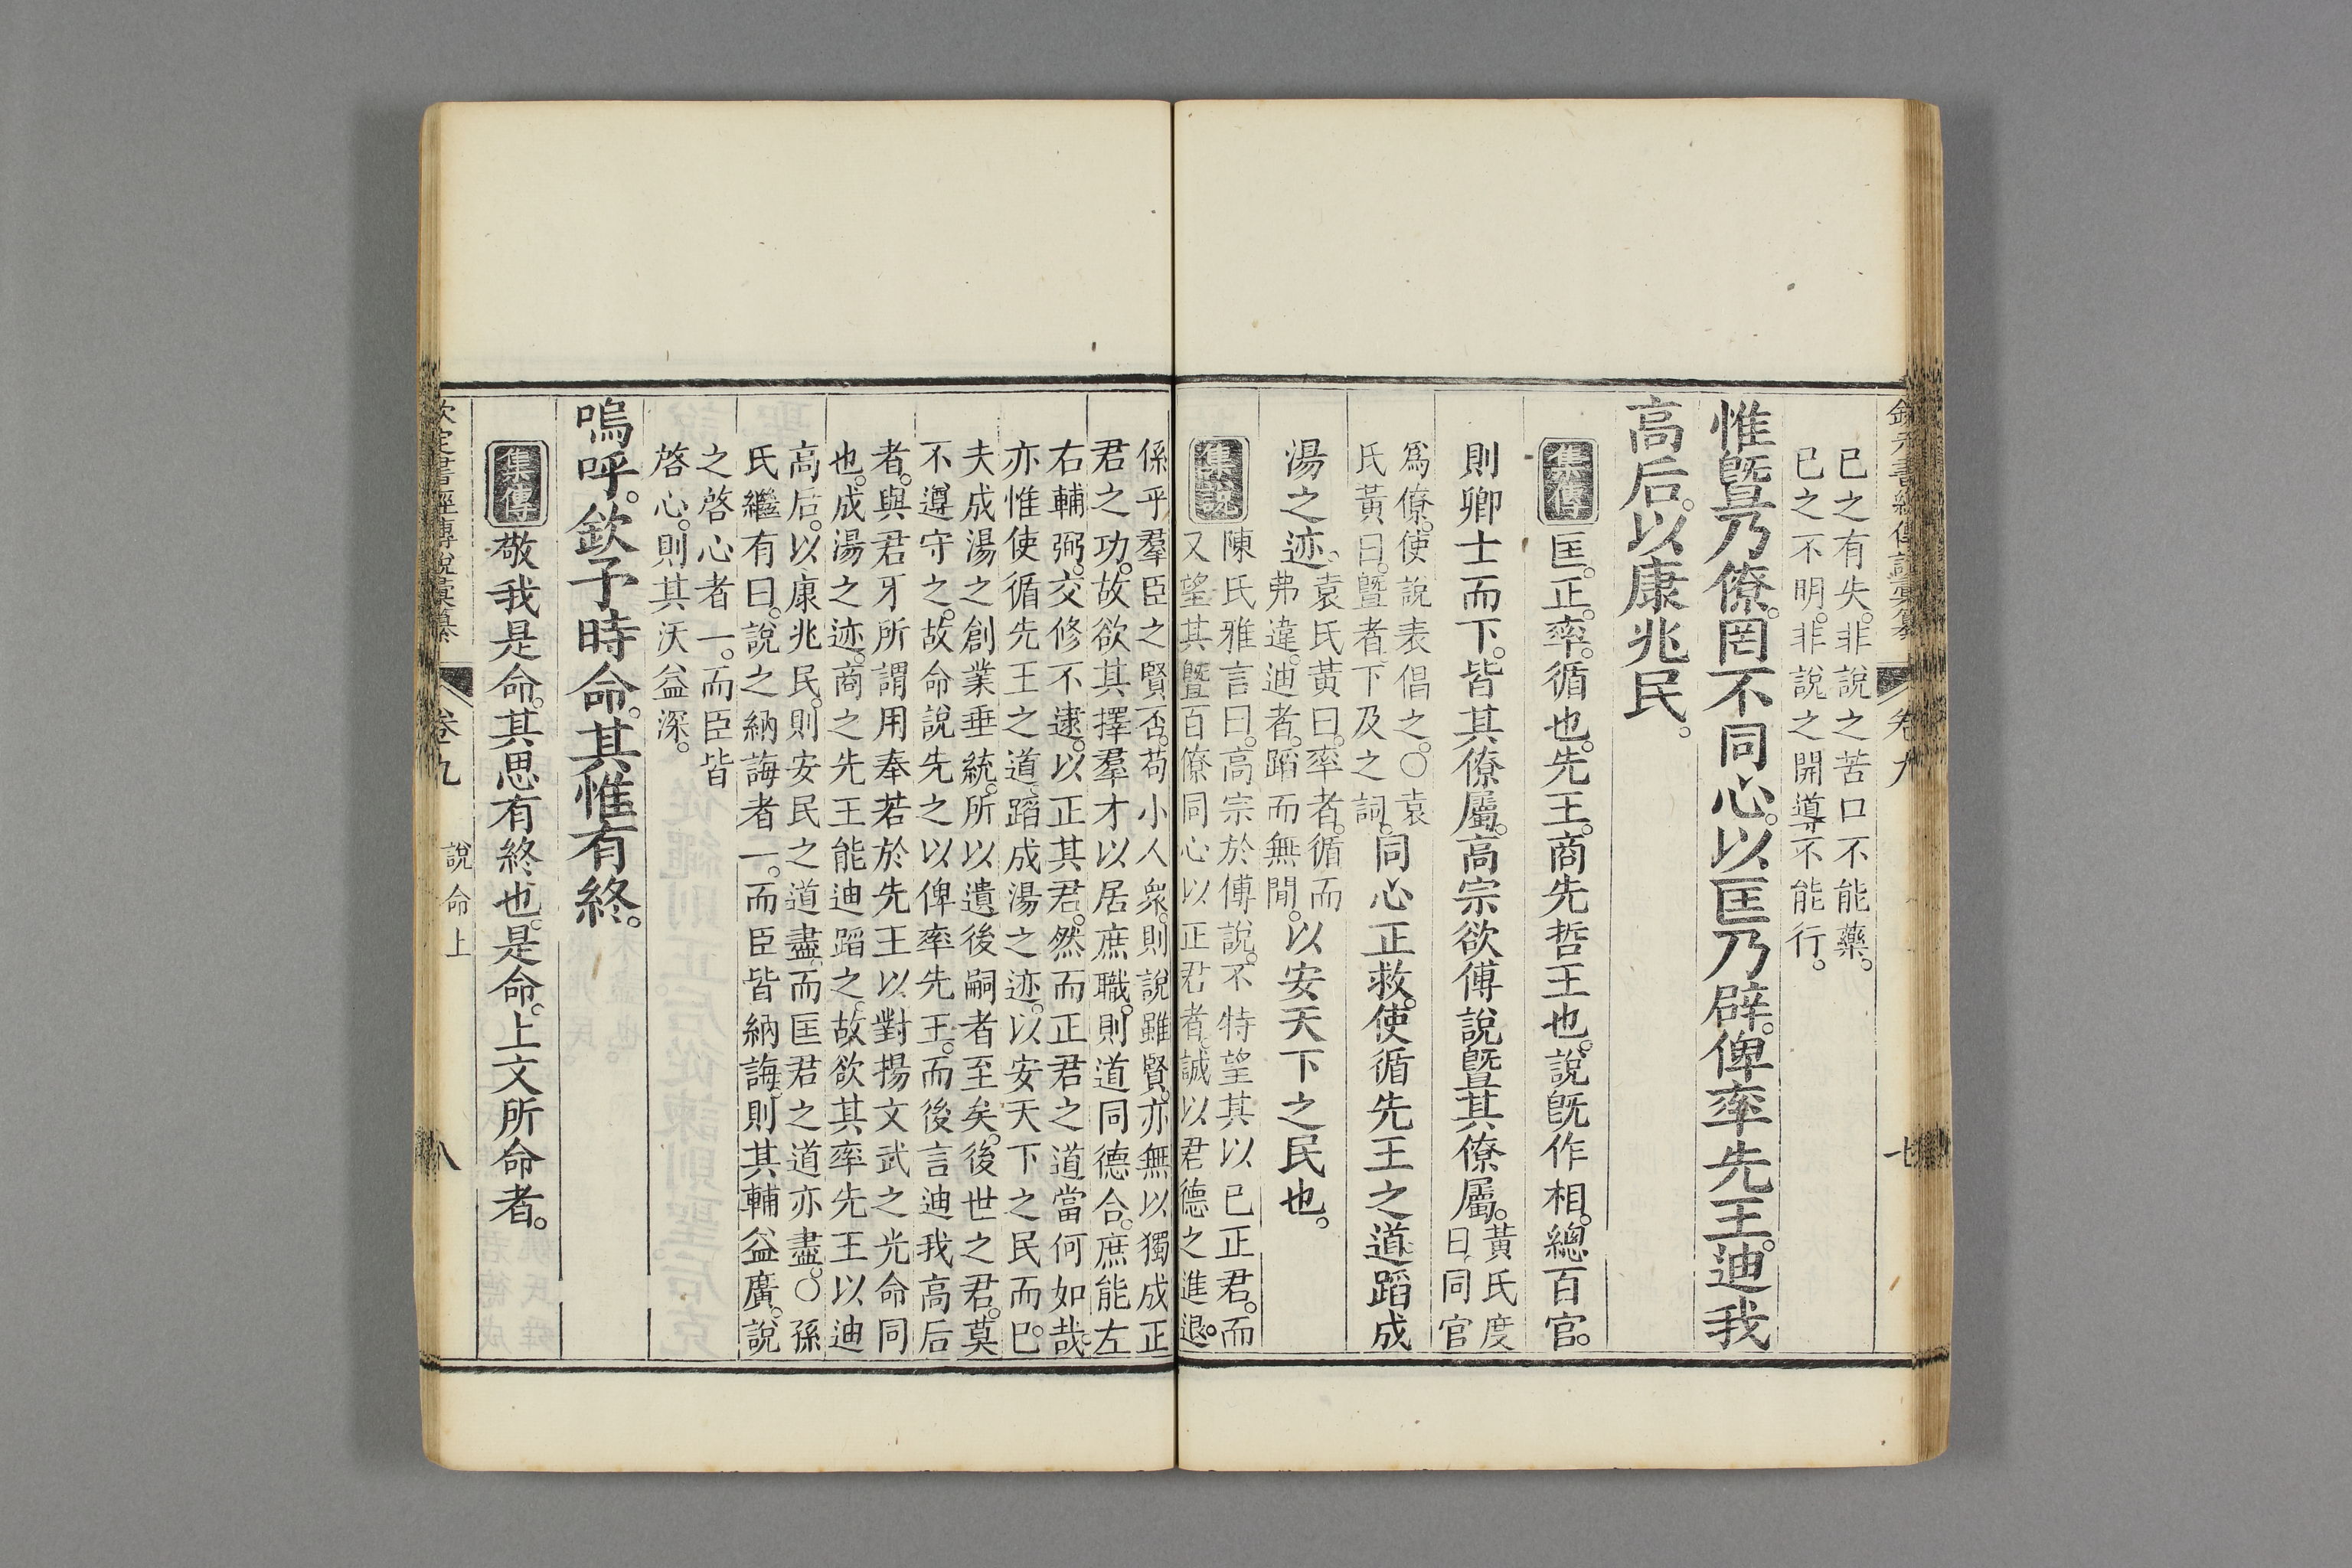 欽定書經傳說彙纂 卷九 七
已之有失。非說之苦口不能藥。
已之不明。非說之開導不能行。
惟曁乃僚。罔不同心。以匡乃辟。俾率先王。迪我
高后。以康兆民。
集傳 匡。正。率。循也。先王。商先哲王也。說旣作相。總百官。
則卿士而下。皆其僚屬。高宗欲傅說曁其僚屬。黃氏度曰。同官
爲僚。使說表倡之。○袁氏黃曰。曁者。下及之詞。同心正救。使循先王之道。蹈成
湯之迹。袁氏黃曰。率者。循而弗違。迪者。蹈而無閒。以安天下之民也。
集說 陳氏雅言曰。高宗於傅說。不特望其以已正君。而
又望其曁百僚同心以正君者。誠以君德之進退。
係乎羣臣之賢否。苟小人衆。則說雖賢。亦無以獨成正
君之功。故欲其擇羣才以居庶職。則道同德合。庶能左
右輔弼。交修不逮。以正其君。然而正君之道當何如哉。
亦惟使循先王之道。蹈成湯之迹。以安天下之民而已。
夫成湯之創業垂統。所以遺後嗣者至矣。後世之君。莫
不遵守之。故命說先之以俾率先王。而後言迪我高后
者。與君牙所謂用奉若於先王以對揚文武之光命同
也。成湯之迹。商之先王能迪蹈之。故欲其率先王以迪
高后。以康兆民。則安民之道盡。而匡君之道亦盡。○孫
氏繼有曰。說之納誨者一。而臣皆納誨。則其輔益廣。說
之啓心者一。而臣皆
啓心。則其沃益深。
嗚呼。欽予時命。其惟有終。
集傳 敬我是命。其思有終也。是命。上文所命者。
欽定書經傳說彙纂 卷九 說命上 八